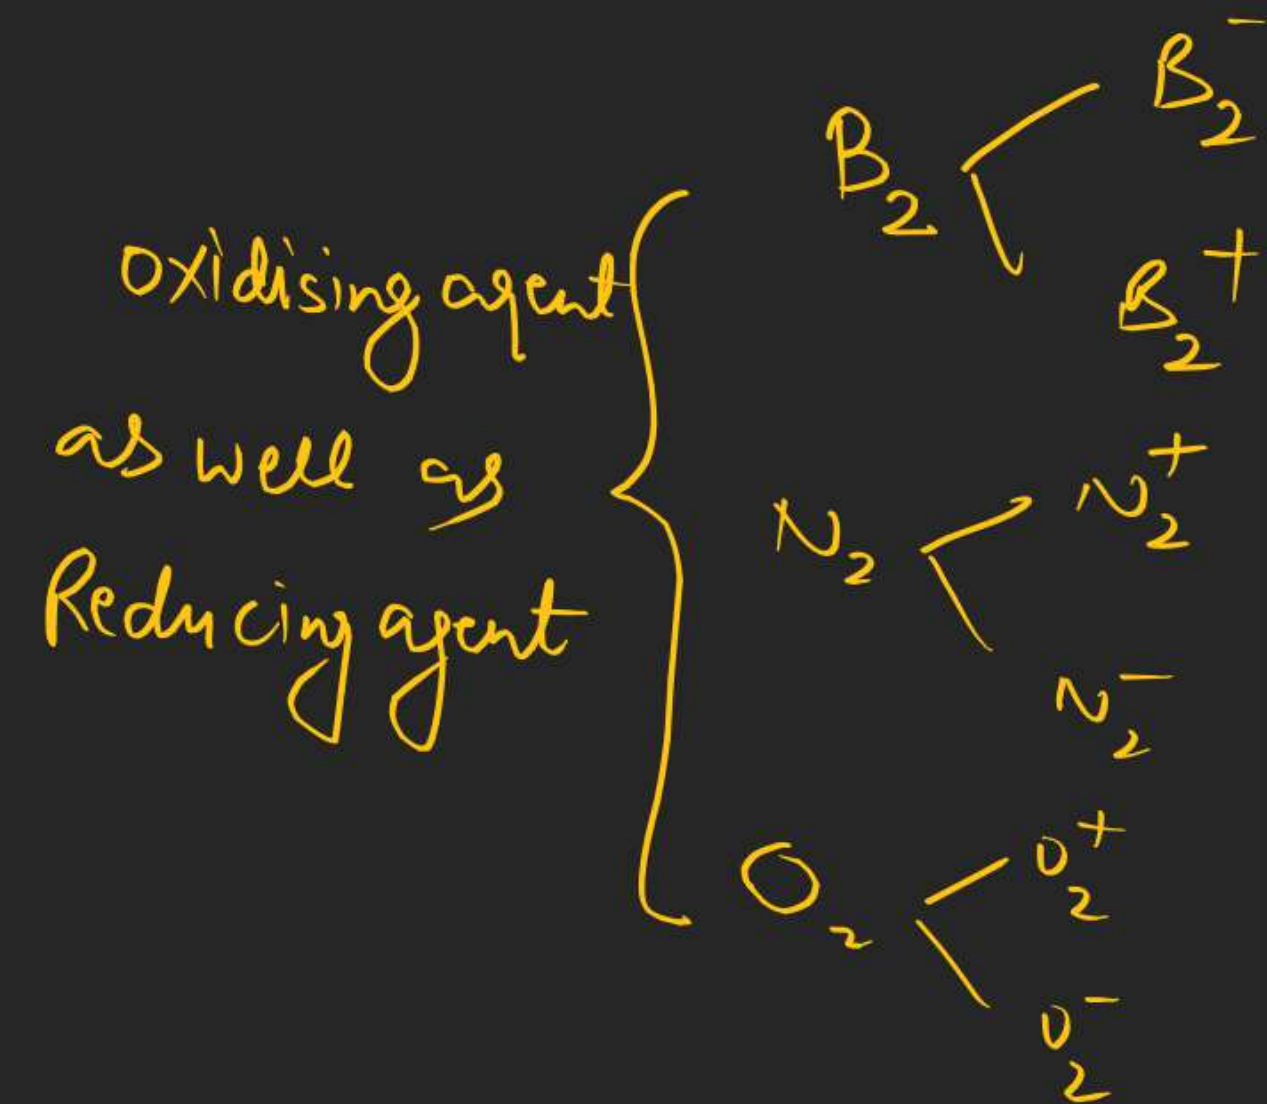 oxidising agent
as well as
Reducing agent
B₂
B₂⁻
B₂⁺
N₂
N₂⁺
N₂⁻
O₂
O₂⁺
O₂⁻